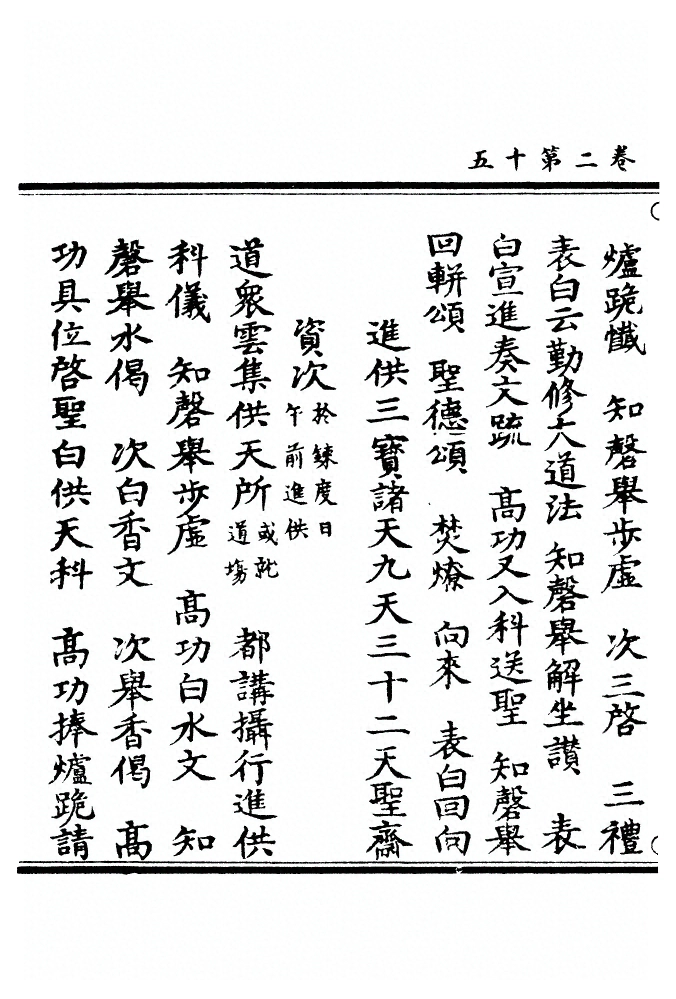 卷二第十五
爐跪懺　知磬舉步虛　次三啓　三禮
表白云勤修大道法　知磬舉解坐讚　表
白宣進奏文疏　高功又入科送聖　知磬舉
回軿頌　聖德頌　焚燎　向來　表白回向
進供三寶諸天九天三十二天聖齋
資次於鍊度日午前進供
道衆雲集供天所或就道場　都講攝行進供
科儀　知磬舉步虛　高功白水文　知
磬舉水偈　次白香文　次舉香偈　高
功具位啓聖白供天科　高功捧爐跪請